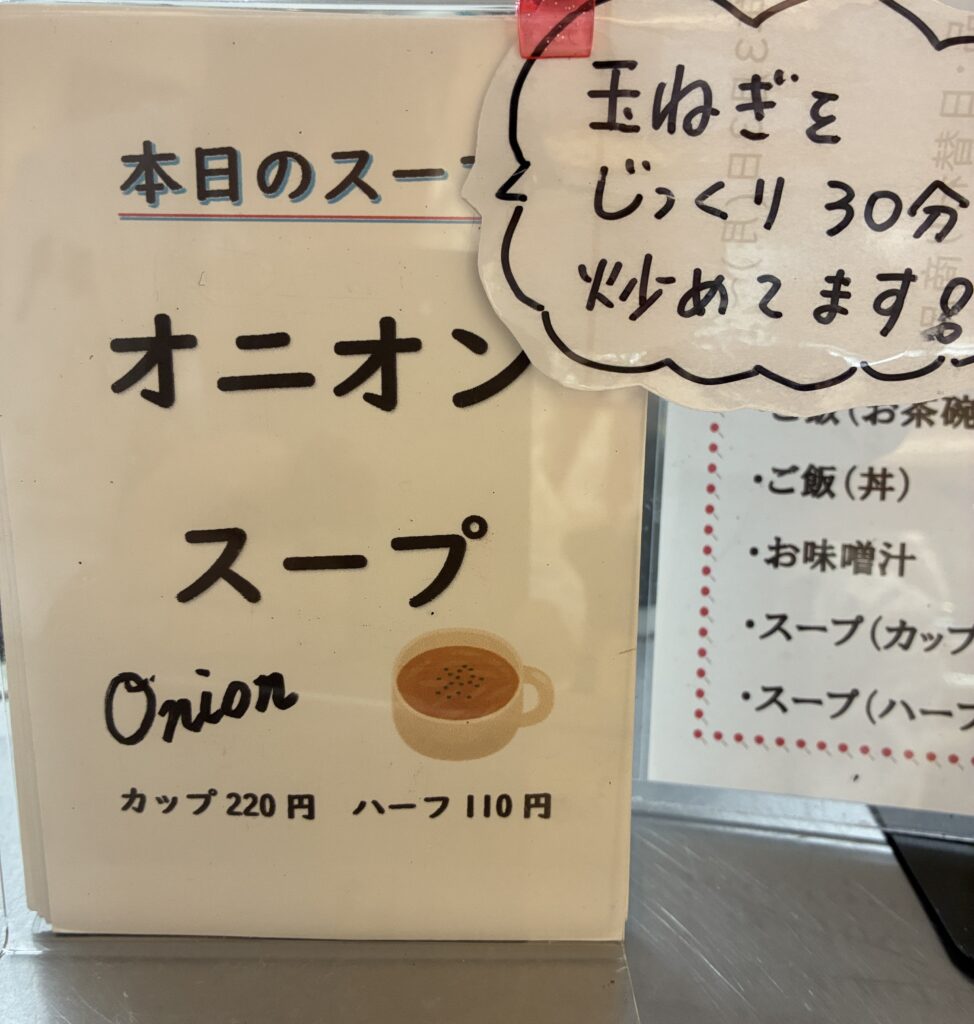 本日のスー
オニオン
スープ
Onion
カップ 220 円 ハーフ 110 円
玉ねぎを
じっくり 30分
炒めてます!
ご飯(お茶碗
・ご飯(丼)
・お味噌汁
・スープ(カップ
・スープ(ハーフ